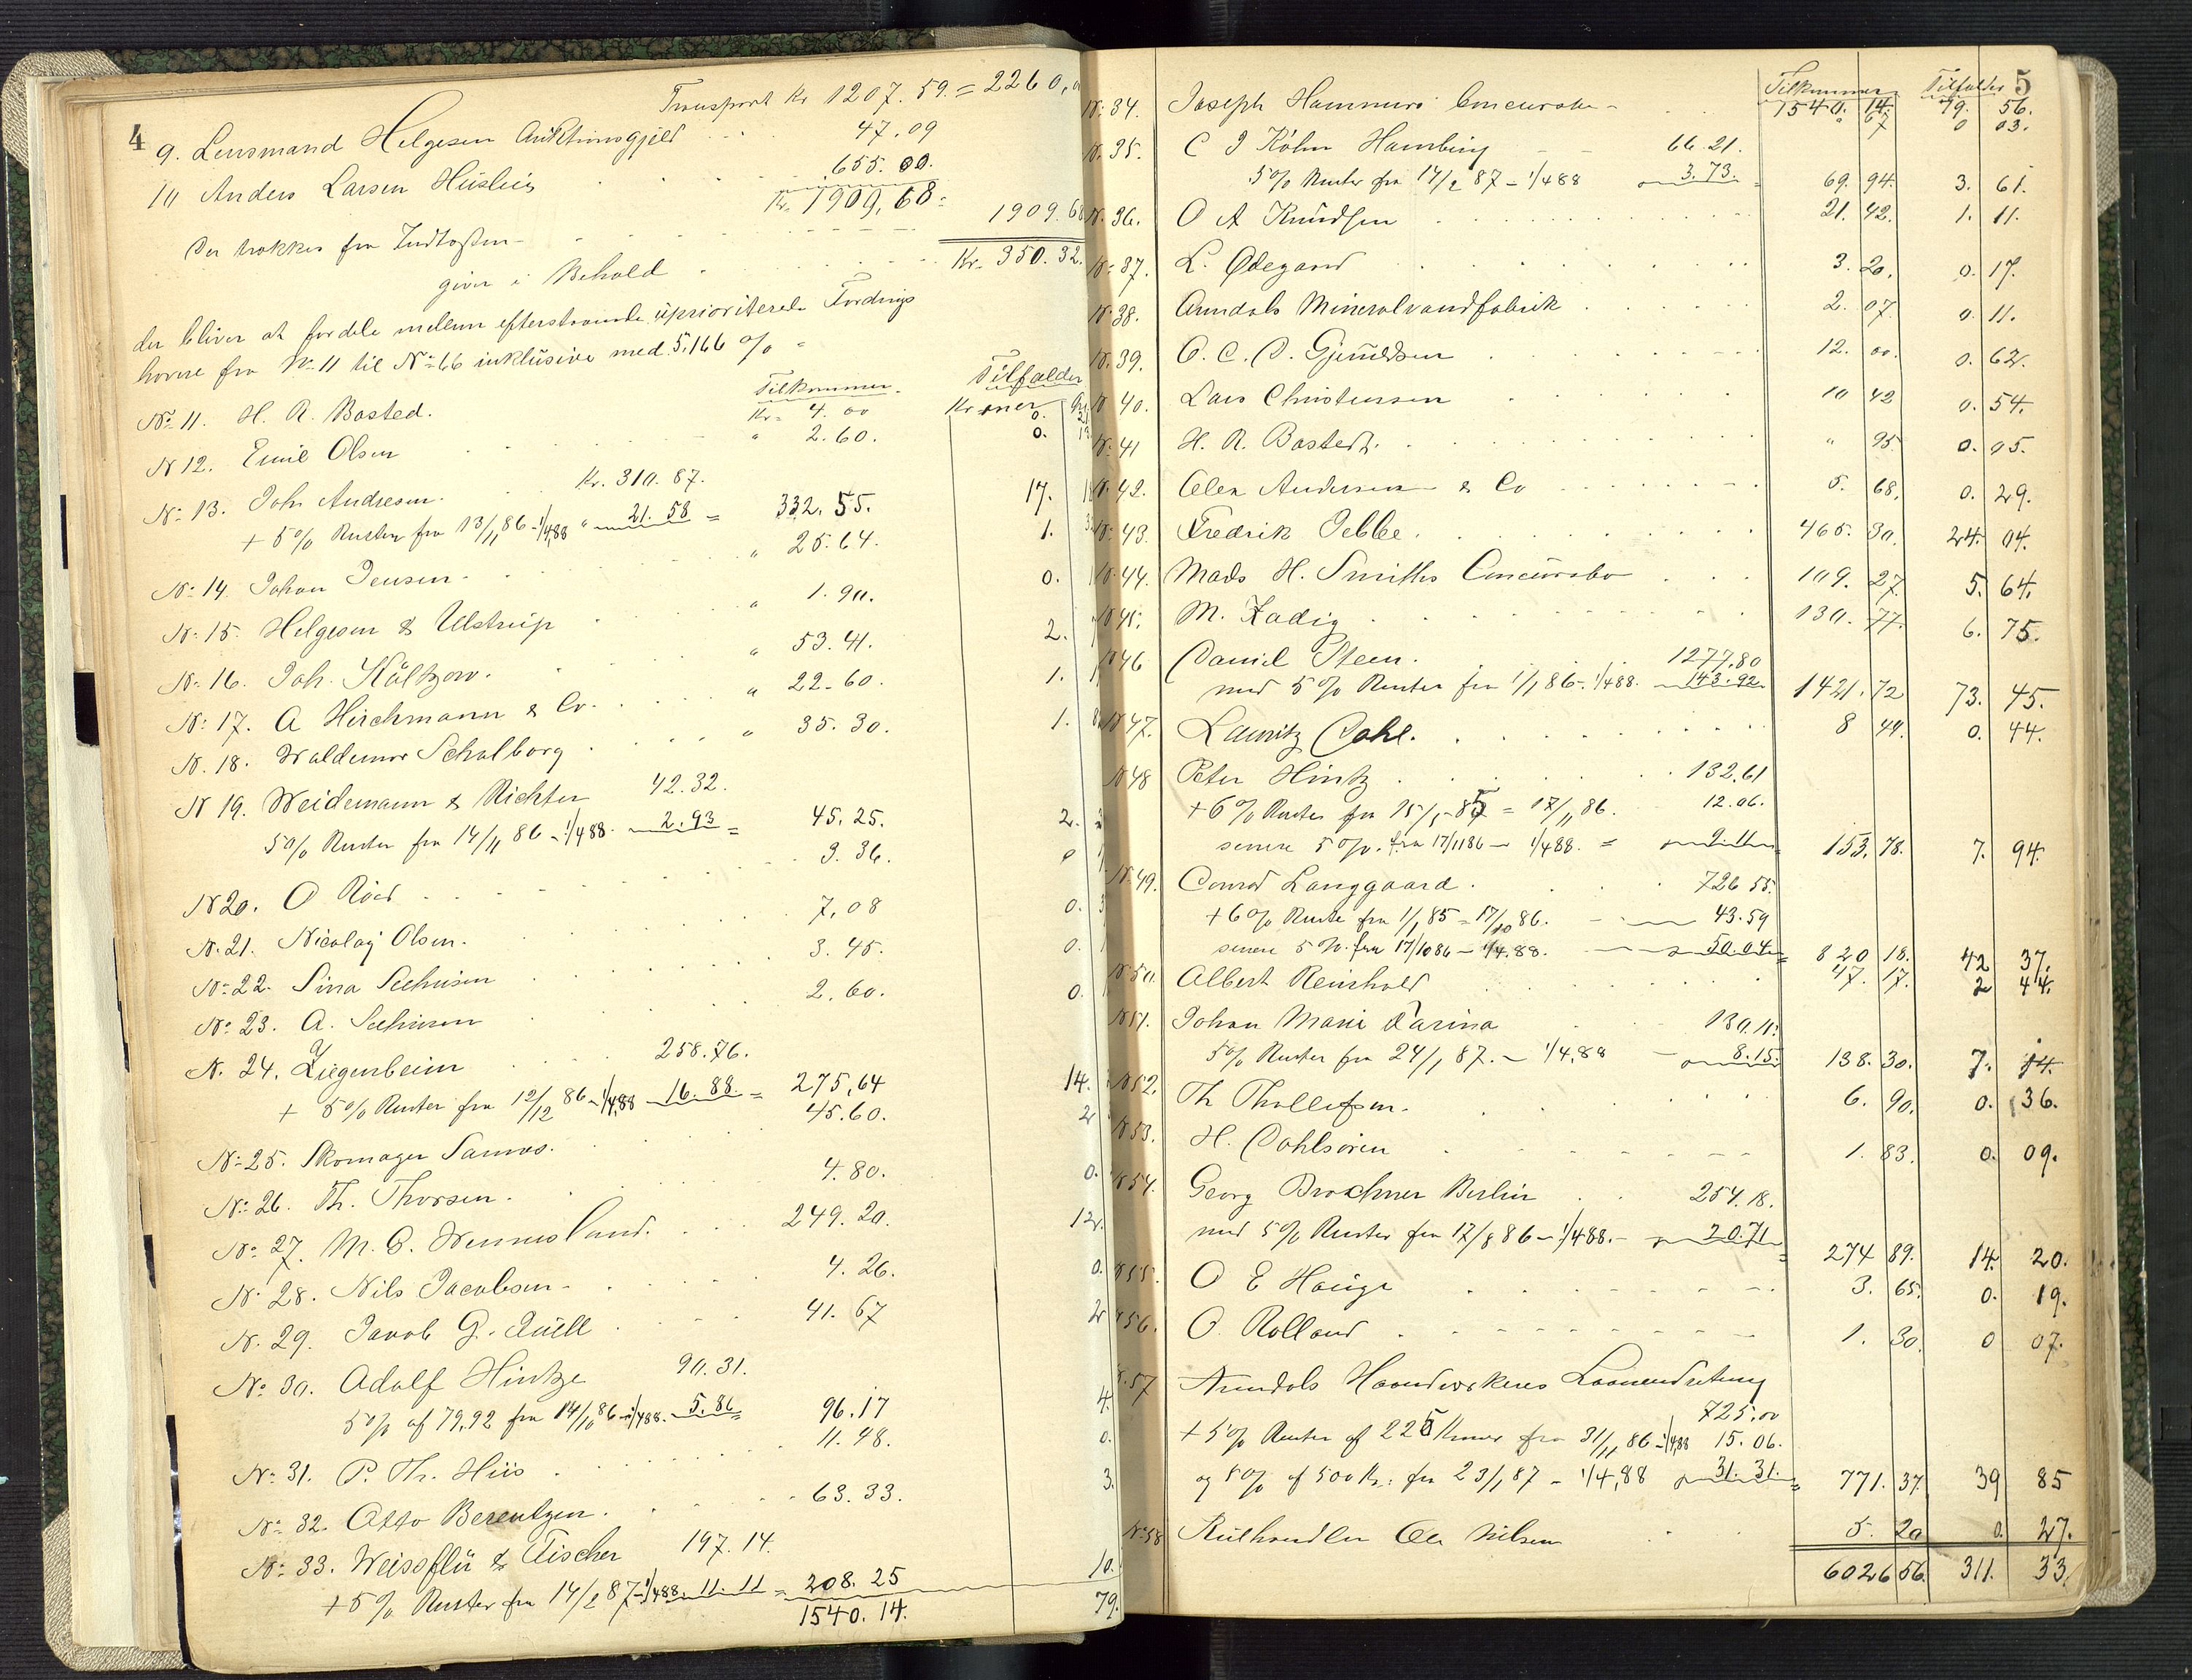 4
Transport Kr 1207.59. = 2260,0
9. Lensmand Helgesen Auktionsgjeld 47.09
10 Anders Larsen Husleie 655.00.
Kr. 1909,68. 1909.68
der trækkes fra Indtægten
giver i Behold Kr. 350.32.
der bliver at fordele mellem efterstaaende uprioriterede Fordrings
havere fra No 11 til No 66 inklusive med 5,166 %
Tilkommer. Tilfalder
No 11. H. A. Basted. Kr. 4.00 Kroner 0.
N 12. Emil Olsen " 2.60. 0.
No 13. Joh Andresen. Kr. 310.87.
+ 5% Renter fra 13/11 86 - 1/4 88 " 21.58 = 332.55. 17.
No 14. Johan Jensen. " 25.64. 1.
No 15. Helgesen & Ulstrup " 1.90. 0.
No 16. Joh. Kültzow. " 53.41. 2.
No 17. A Hirchmann & Co. " 22.60. 1.
N. 18. Waldemar Schalborg " 35.30. 1.
N 19. Weidemann & Richter 42.32.
5% Renter fra 14/11 86 - 1/4 88. 2.93 = 45.25. 2.
N 20. O Röed 3.36.
N. 21. Nicolay Olsen. 7,08 0.
No 22. Sina Seehusen 3.45. 0.
No 23. A. Seehusen 2.60. 0.
N. 24. Ziegenbeim 258.76.
+ 5% Renter fra 12/12 86 - 1/4 88 16.88. = 275,64 14.
No 25. Skomager Sannes. 45.60. 2
No 26. Th. Thorsen. 4.80. 0.
No 27. M. G. Wennesland. 249.20. 12.
No 28. Nils Jacobsen 4.26. 0.
N. 29. Jacob G. Quell 41.67 2
No 30. Adolf Hintze 90.31.
5% af 79,92 fra 14/10 86 - 1/4 88. 5.86 = 96.17 4.
No 31. P. Th. Hiis 11.48. 0.
No 32. Otto Berentzen. 63.33. 3.
No 33. Weissflü & Fischer 197.14.
+ 5% Renter fra 14/2 87 - 1/4 88. 11.11 = 208.25 10.
1540.14. 79.
5
Tilkommer Tilfalder
1540. 14. 79. 56.
No 34. Joseph Hammers Concursbo " 67 0 03.
No 35. C J Köhn Hamburg 66.21.
5% Renter fra 14/2 87 - 1/4 88 3.73. = 69. 94. 3. 61.
No 36. O A Knudsen 21. 42. 1. 11.
No 37. L. Ødegaard 3. 20. 0. 17.
No 38. Arendals Mineralvandfabrik 2. 07 0. 11.
No 39. O. C. O. Gjeruldsen 12. 00. 0. 62.
No 40. Lars Christensen 10 42 0. 54.
No 41 H. A. Bastedt. " 95 0. 05.
No 42. Alex Andersen & Co 5. 68. 0. 29.
No 43. Fredrik Tebbe. 465. 30. 24. 04.
No 44. Mads H. Smiths Concursbo 109. 27. 5. 64.
No 45. M. Zadig 130. 77. 6. 75.
No 46 Daniel Steen. 1277.80
med 5% Renter fra 1/1 86 - 1/4 88. 143.92 1421. 72 73. 45.
No 47. Lauritz Dahl. 8 44. 0. 44.
No 48 Peter Hintz 132.61
+ 6% Renter fra 15/5 85 = 17/11 86. 12.06.
senere 5%. fra 17/11 86 - 1/4 88. = 9.11 = 153. 78. 7. 94.
No 49. Conrad Langgaard. 726 55.
+ 6% Rente fra 1/1 85 = 17/10 86. 43.59
senere 5%. fra 17/10 86 - 1/4.88. 50.04 = 820 18. 42 37.
No 50. Albert Reinhold 47. 17. 2 44.
No 51. Johan Marie Farina 130.15
5% Renter fra 24/1 87. - 1/4.88 8.15. 138. 30. 7. 14.
No 52. Th Thollefsen. 6. 90. 0. 36.
No 53. H. Dahlsören 1. 83. 0. 09.
No 54. Georg Brockner Berlin 254.18.
med 5% Renter fra 17/8 86 - 1/4 88. 20.71 = 274 89. 14. 20.
No 55. O E Hauge 3. 65. 0. 19.
No 56. O. Rolland 1. 30 0 07.
No 57 Arendals Haandverkeres Laaneindretning
725.00
+ 5% Renter af 225 Kroner fra 31/11 86 - 1/4 88 15.06.
og 5% af 500 Kr. fra 23/1 87 - 1/4,88 31.31. = 771. 37. 39 85
No 58 Kulhandler Ole Nilsen 5. 20 0. 27.
6026 56. 311. 33.